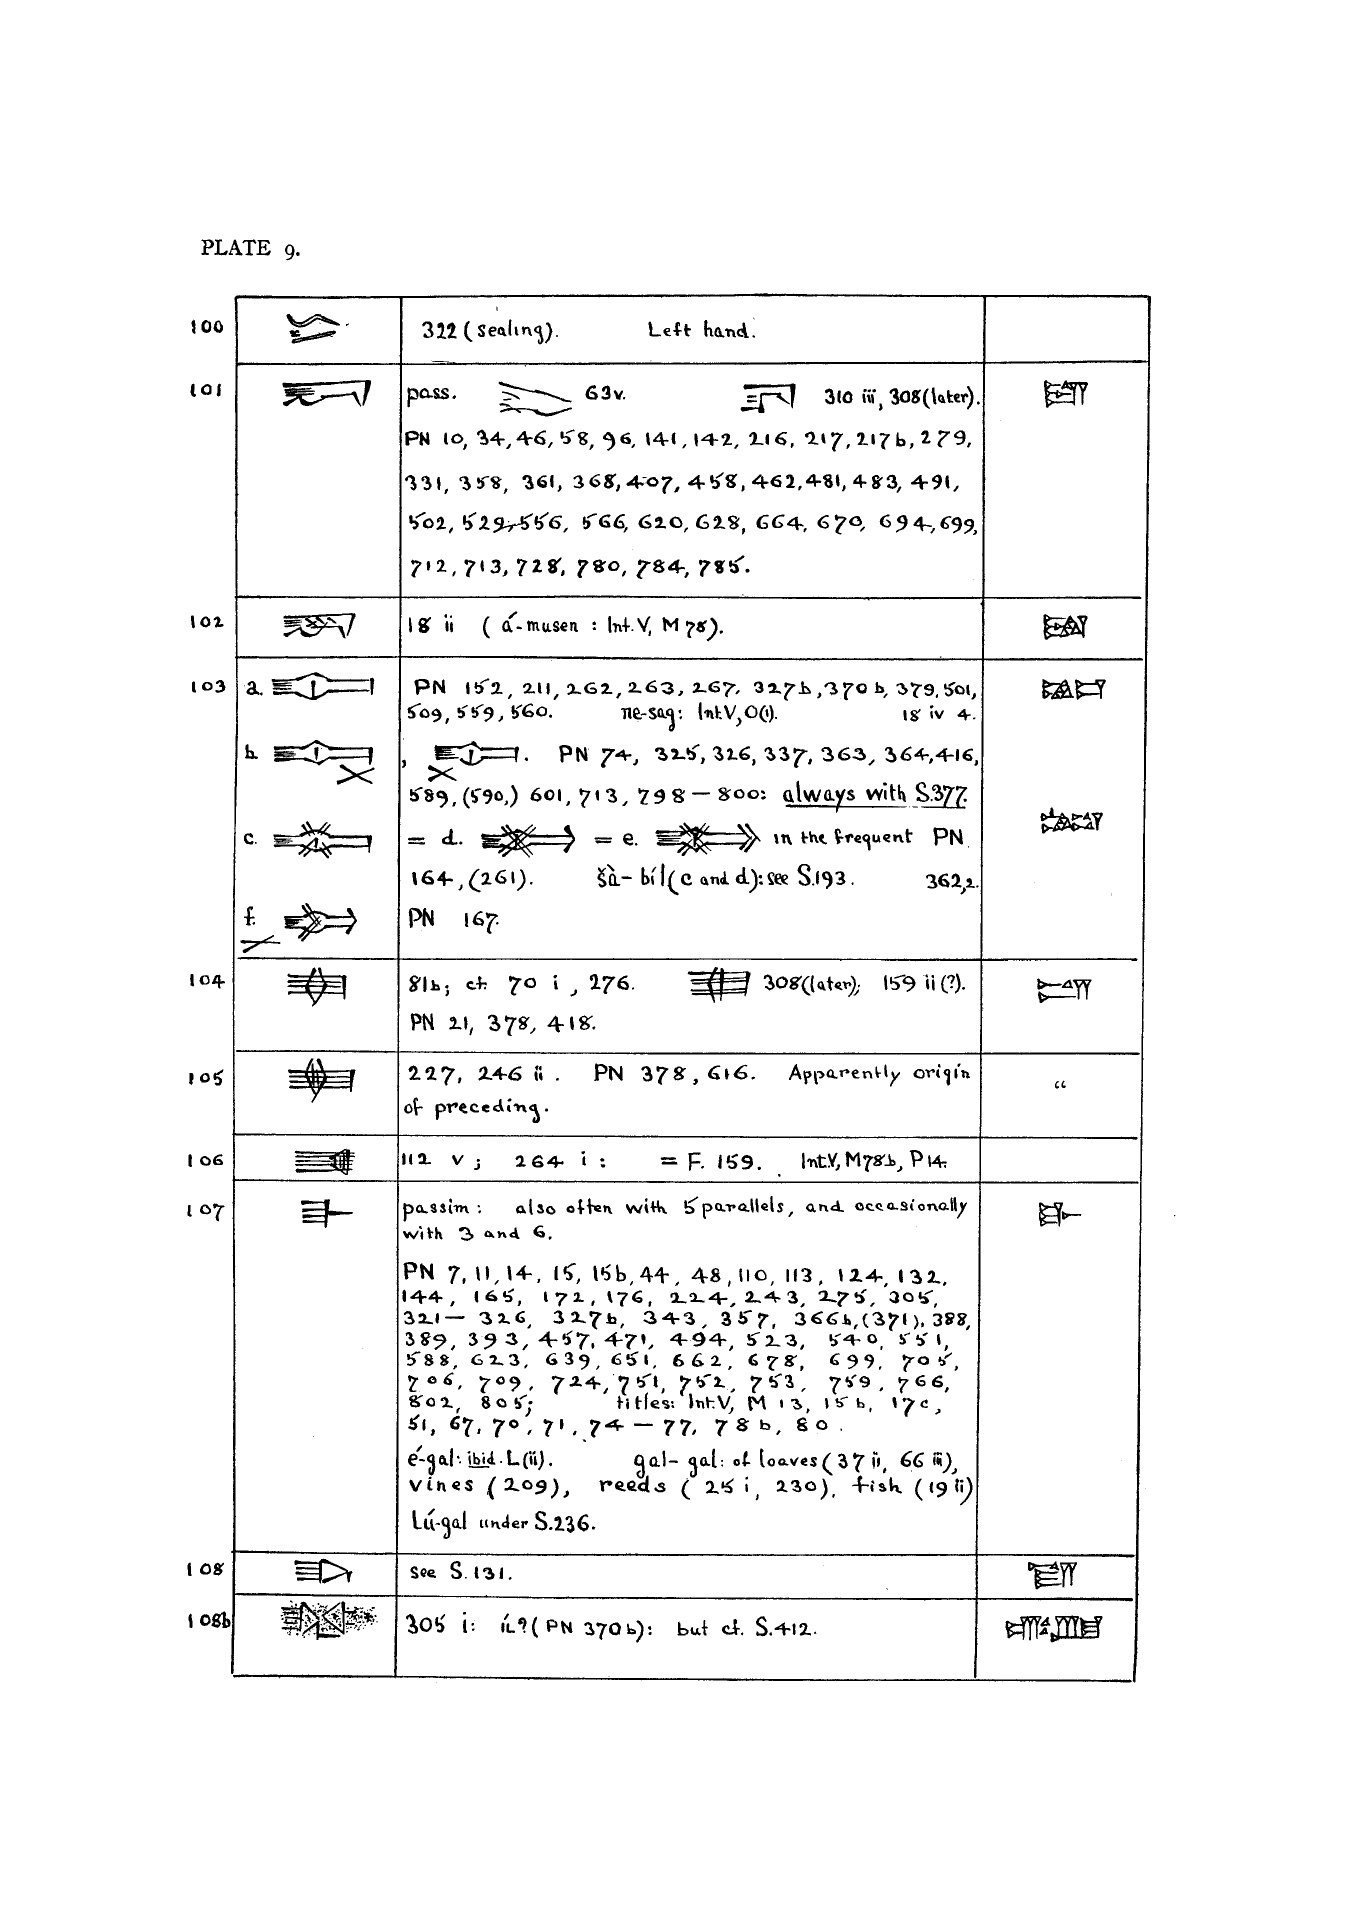 PLATE 9.
100 322 (sealing). Left hand.
101 pass. 63v. 310 iii, 308 (later).
PN 10, 34, 46, 58, 96, 141, 142, 216, 217, 217b, 279,
331, 358, 361, 368, 407, 458, 462, 481, 483, 491,
502, 529, 556, 566, 620, 628, 664, 670, 694, 699,
712, 713, 728, 780, 784, 785.
102 18 ii (á-musen : Int.V, M 78).
103 a. PN 152, 211, 262, 263, 267, 327b, 370b, 379, 501,
509, 559, 560. ne-sag: Int.V, O(i). 18 iv 4.
b. , . PN 74, 325, 326, 337, 363, 364, 416,
589, (590,) 601, 713, 798 — 800: always with S.377.
c. = d. = e. in the frequent PN
164, (261). šà-bíl (c and d): see S.193. 362,2.
f. PN 167.
104 81b; cf. 70 i, 276. 308 (later); 159 ii (?).
PN 21, 378, 418.
105 227, 246 ii. PN 378, 616. Apparently origin “
of preceding.
106 112 v; 264 i: = F. 159. Int.V, M78b, P14.
107 passim: also often with 5 parallels, and occasionally
with 3 and 6.
PN 7, 11, 14, 15, 15b, 44, 48, 110, 113, 124, 132,
144, 165, 172, 176, 224, 243, 275, 305,
321 — 326, 327b, 343, 357, 366b, (371), 388,
389, 393, 457, 471, 494, 523, 540, 551,
588, 623, 639, 651, 662, 678, 699, 705,
706, 709, 724, 751, 752, 753, 759, 766,
802, 805; titles: Int.V, M 13, 15b, 17c,
51, 67, 70, 71, 74 — 77, 78b, 80.
é-gal: ibid. L(ii). gal-gal: of loaves (37 ii, 66 iii),
vines (209), reeds (25 i, 230), fish (19 ii)
Lú-gal under S.236.
108 see S.131.
108b 305 i: íL? (PN 370b): but cf. S.412.